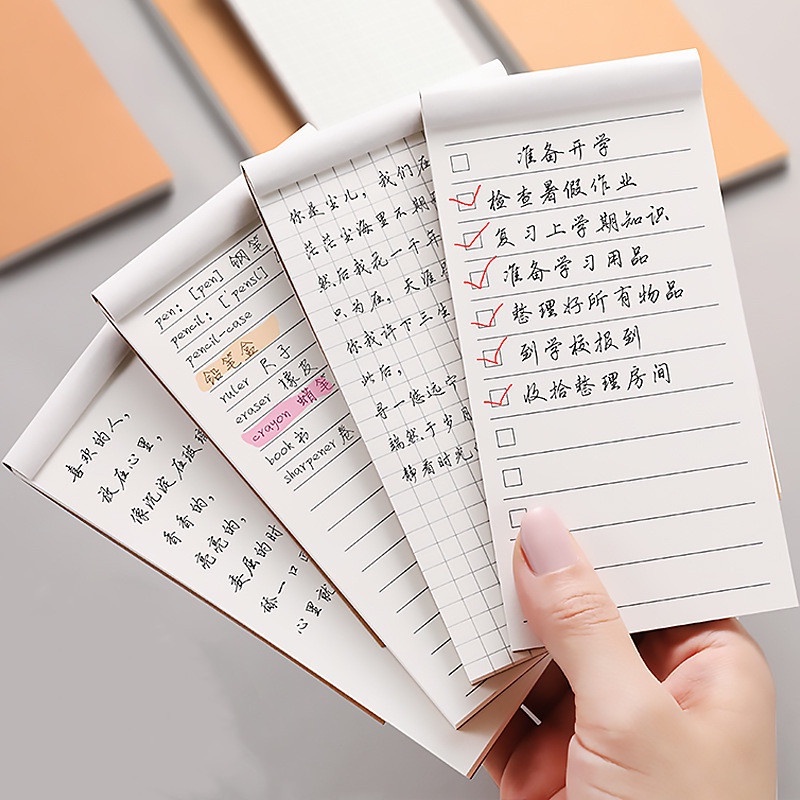 喜欢的人,
放在心里,
像沉淀在玻璃
香香的,
亮亮的,
委屈的时
舔一口
心里就
pen: [pen] 钢笔
pencil: [pensl]
pencil-case
铅笔盒
ruler 尺子
eraser 橡皮
crayon 蜡笔
book 书
sharpener 卷
你是尘儿, 我们在
茫茫尘海里不期
然后我花一千年
只为在, 天涯
你我许下三生
此后,
寻一悠远宁
端然于岁月
静看时光
准备开学
检查暑假作业
复习上学期知识
准备学习用品
整理好所有物品
到学校报到
收拾整理房间